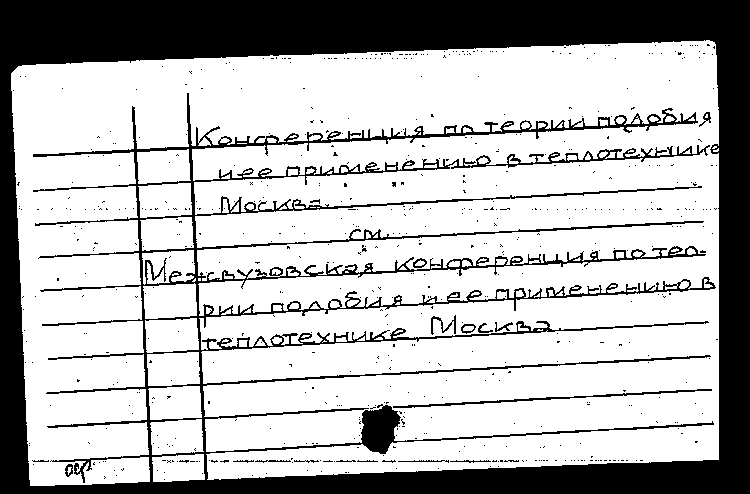 Конференция по теории подобия
и ее применению в теплотехнике
Москва.
см.
Межвузовская конференция по тео-
рии подобия и ее применению в
теплотехнике. Москва.